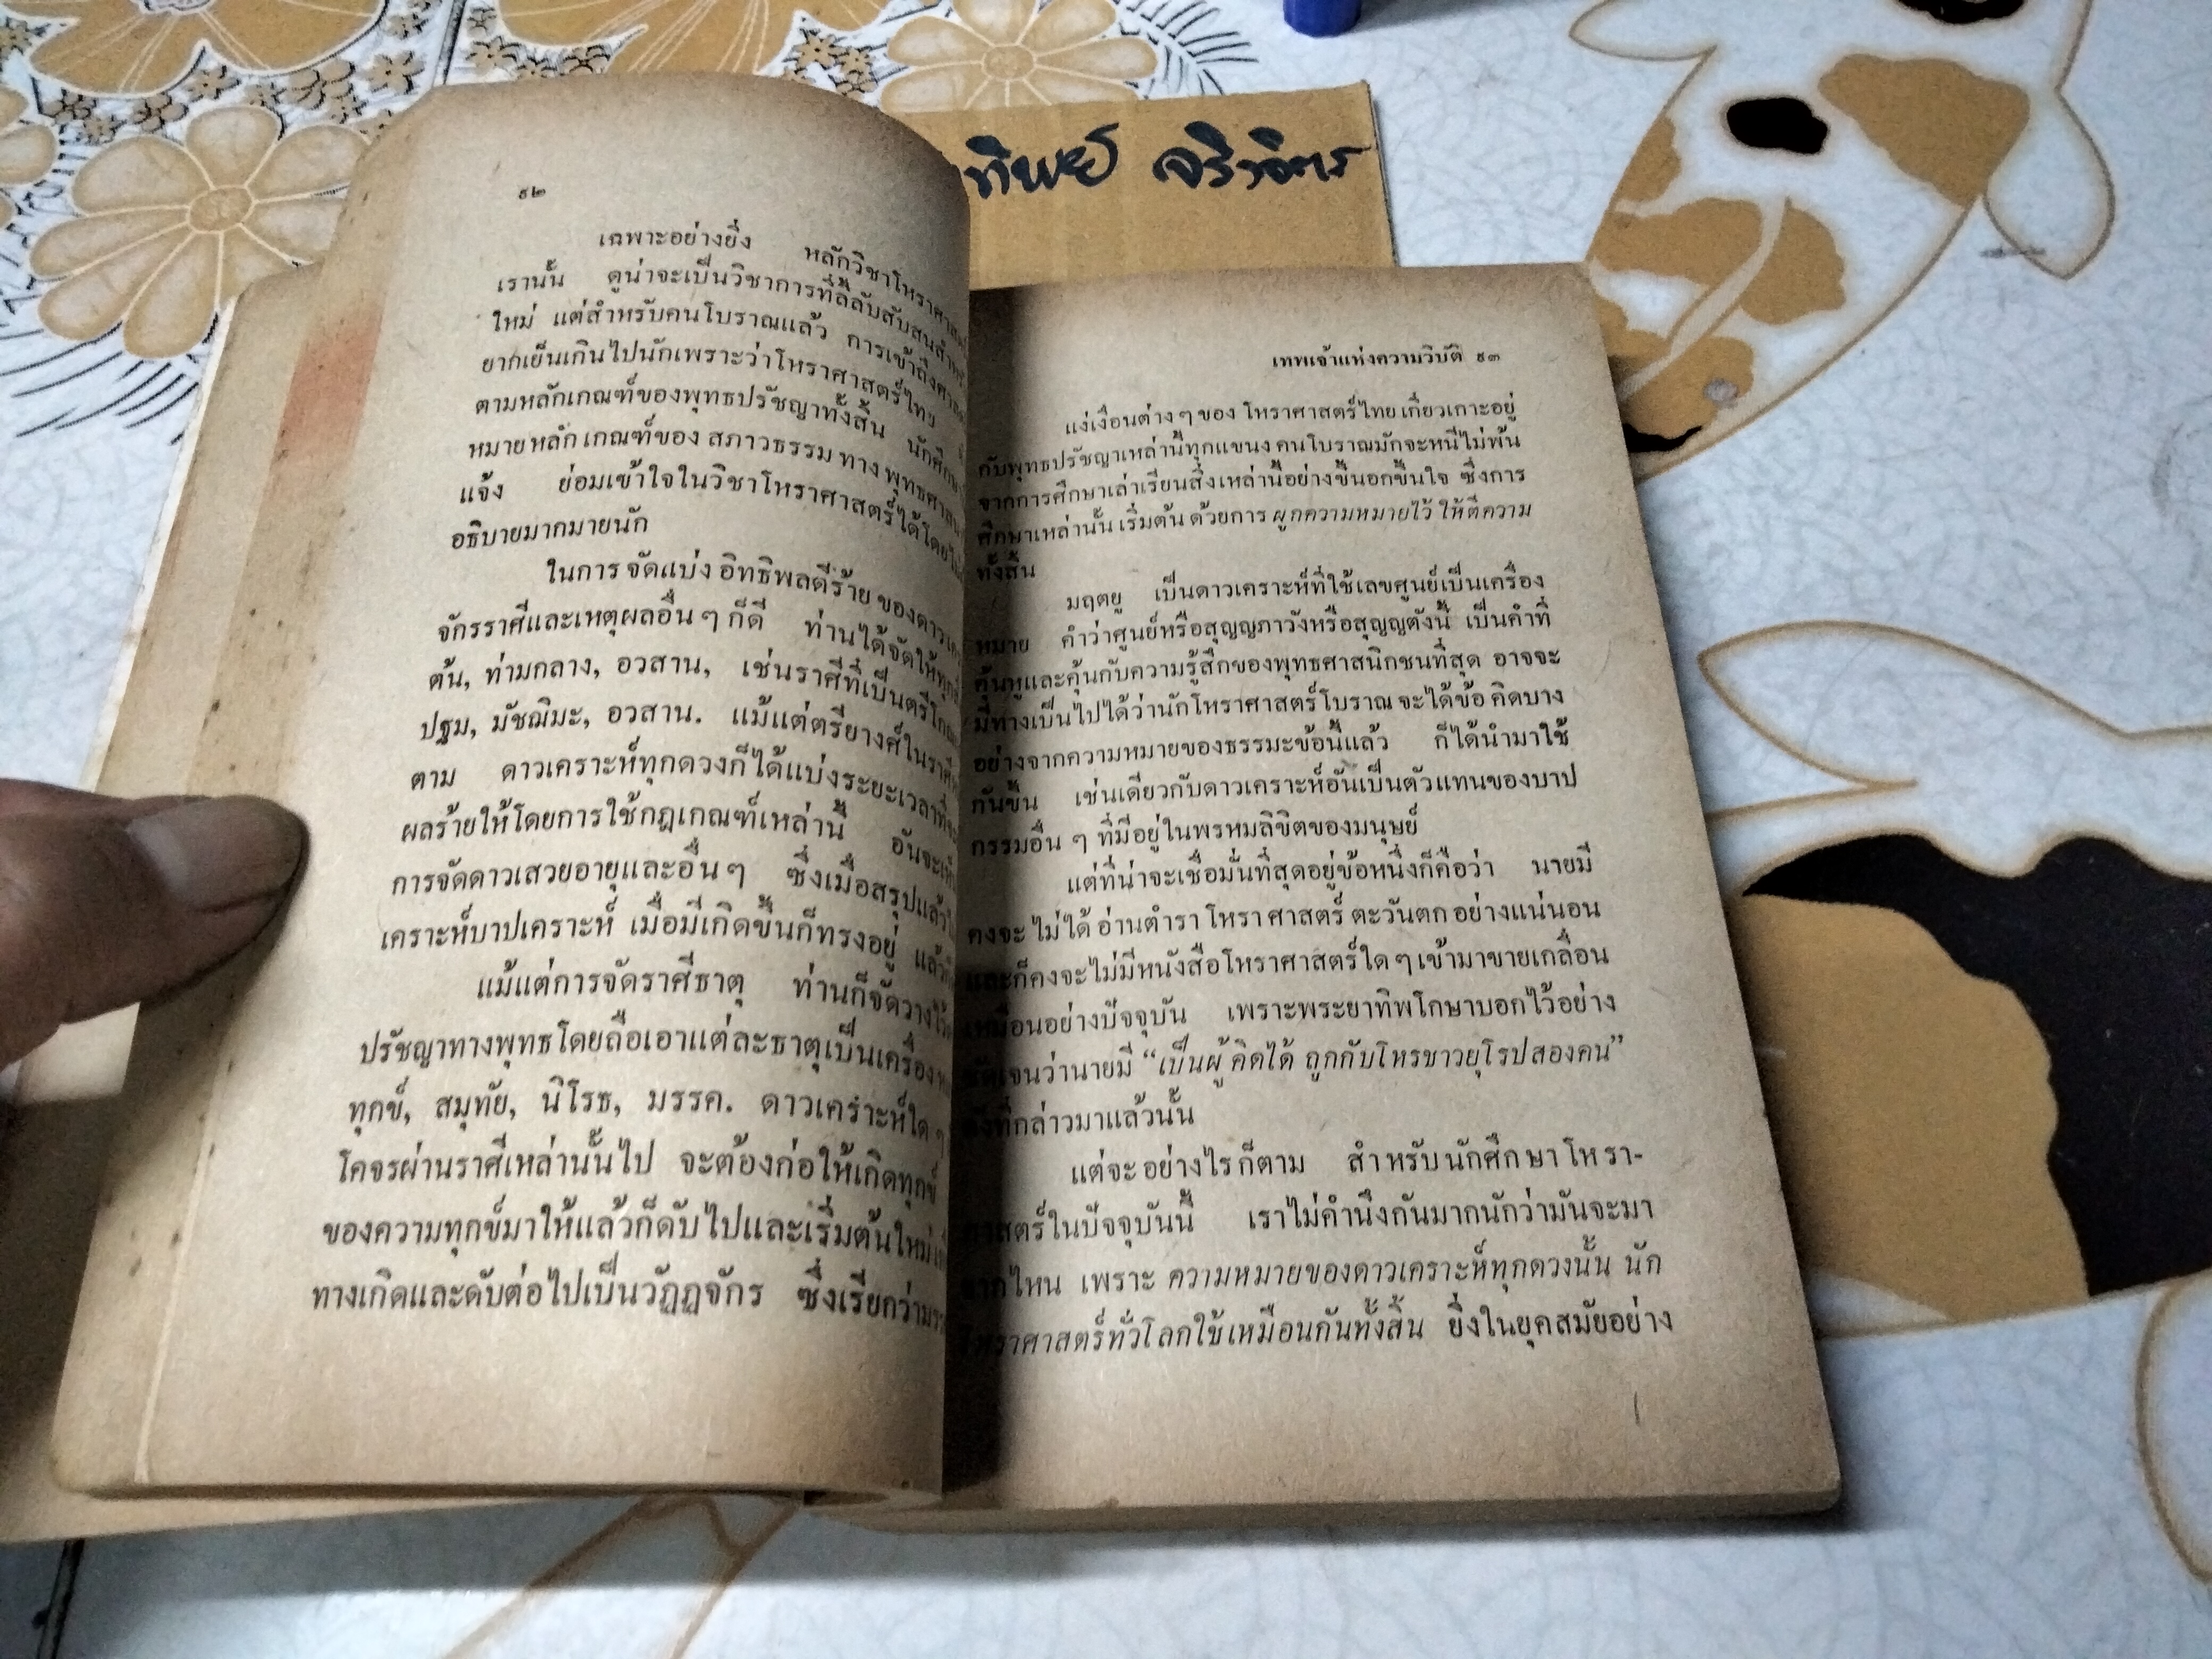 ทิพย์ จริงจิตร
๙๒
เฉพาะอย่างยิ่ง หลักวิชาโหราศาสตร์
เรานั้น ดูน่าจะเป็นวิชาการที่ลี้ลับสับสนสำหรับ
ใหม่ แต่สำหรับคนโบราณแล้ว การเข้าถึง
ยากเย็นเกินไปนักเพราะว่าโหราศาสตร์ไทย
ตามหลักเกณฑ์ของพุทธปรัชญาทั้งสิ้น นักศึกษา
หมายหลักเกณฑ์ของ สภาวธรรม ทาง พุทธศาสนา
แจ้ง ย่อมเข้าใจในวิชาโหราศาสตร์ได้โดยไม่
อธิบายมากมายนัก
ในการ จัดแบ่ง อิทธิพลดีร้าย ของดาว
จักรราศีและเหตุผลอื่น ๆ ก็ดี ท่านได้จัดให้ทุก
ต้น, ท่ามกลาง, อวสาน, เช่นราศีที่เป็นตรีโกณ
ปฐม, มัชฌิมะ, อวสาน. แม้แต่ตรียางศ์ในราศี
ตาม ดาวเคราะห์ทุกดวงก็ได้แบ่งระยะเวลาที่จะ
ผลร้ายให้โดยการใช้กฎเกณฑ์เหล่านี้ อันจะเห็น
การจัดดาวเสวยอายุและอื่น ๆ ซึ่งเมื่อสรุปแล้ว
เคราะห์บาปเคราะห์ เมื่อมีเกิดขึ้นก็ทรงอยู่ แล้วก็
แม้แต่การจัดราศีธาตุ ท่านก็จัดวางไว้
ปรัชญาทางพุทธโดยถือเอาแต่ละธาตุเป็นเครื่อง
ทุกข์, สมุทัย, นิโรธ, มรรค. ดาวเคราะห์ใด ๆ
โคจรผ่านราศีเหล่านั้นไป จะต้องก่อให้เกิดทุกข์
ของความทุกข์มาให้แล้วก็ดับไปและเริ่มต้นใหม่
ทางเกิดและดับต่อไปเป็นวัฏฏจักร ซึ่งเรียกว่า
เทพเจ้าแห่งความวิบัติ ๙๓
แง่เงื่อนต่าง ๆ ของ โหราศาสตร์ไทย เกี่ยวเกาะอยู่
กับพุทธปรัชญาเหล่านี้ทุกแขนง คนโบราณมักจะหนีไม่พ้น
จากการศึกษาเล่าเรียนสิ่งเหล่านี้อย่างขึ้นอกขึ้นใจ ซึ่งการ
ศึกษาเหล่านั้น เริ่มต้น ด้วยการ ผูกความหมายไว้ ให้ตีความ
ทั้งสิ้น
มฤตยู เป็นดาวเคราะห์ที่ใช้เลขศูนย์เป็นเครื่อง
หมาย คำว่าศูนย์หรือสุญญภาวังหรือสุญญตังนี้ เป็นคำที่
คุ้นหูและคุ้นกับความรู้สึกของพุทธศาสนิกชนที่สุด อาจจะ
มีทางเป็นไปได้ว่านักโหราศาสตร์โบราณ จะได้ข้อ คิดบาง
อย่างจากความหมายของธรรมะข้อนี้แล้ว ก็ได้นำมาใช้
กันขึ้น เช่นเดียวกับดาวเคราะห์อันเป็นตัวแทนของบาป
กรรมอื่น ๆ ที่มีอยู่ในพรหมลิขิตของมนุษย์
แต่ที่น่าจะเชื่อมั่นที่สุดอยู่ข้อหนึ่งก็คือว่า นายมี
คงจะ ไม่ได้ อ่านตำรา โหรา ศาสตร์ ตะวันตก อย่างแน่นอน
และก็คงจะไม่มีหนังสือโหราศาสตร์ใด ๆ เข้ามาขายเกลื่อน
เหมือนอย่างปัจจุบัน เพราะพระยาทิพโกษาบอกไว้อย่าง
ชัดเจนว่านายมี “เป็นผู้ คิดได้ ถูกกับโหรชาวยุโรปสองคน”
ดังที่กล่าวมาแล้วนั้น
แต่จะ อย่างไร ก็ตาม สำหรับ นักศึกษา โหรา-
ศาสตร์ในปัจจุบันนี้ เราไม่คำนึงกันมากนักว่ามันจะมา
จากไหน เพราะ ความหมายของดาวเคราะห์ทุกดวงนั้น นัก
โหราศาสตร์ทั่วโลกใช้เหมือนกันทั้งสิ้น ยิ่งในยุคสมัยอย่าง